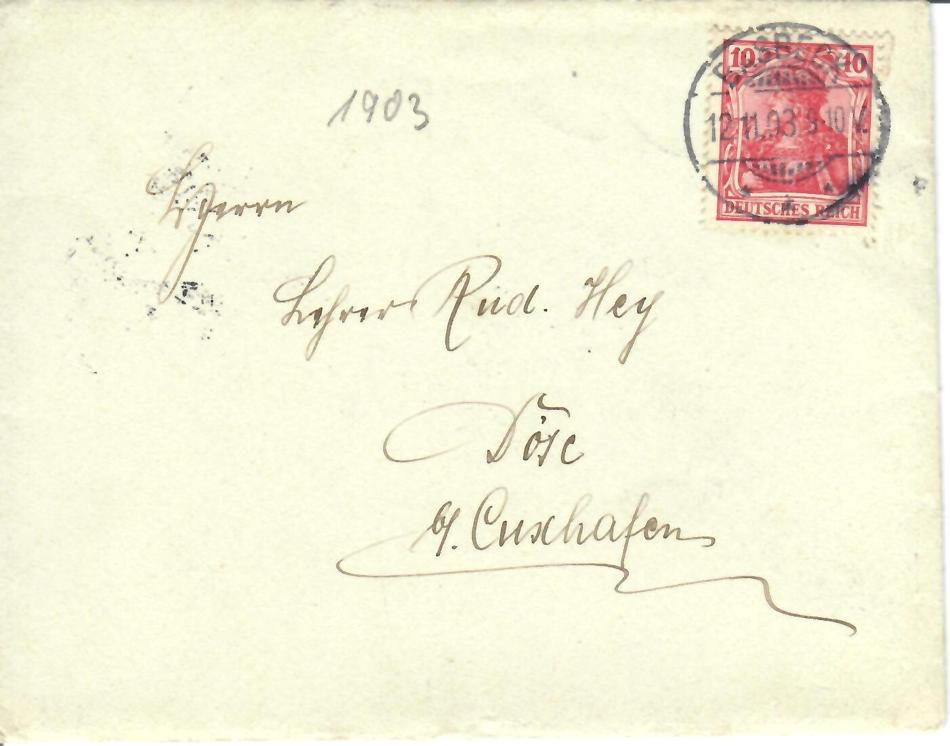 1903
10 10
12.11.03 9-10 V.
DEUTSCHES REICH
Herrn
Lehrer Rud. Hey
Döse
b/. Cuxhafen